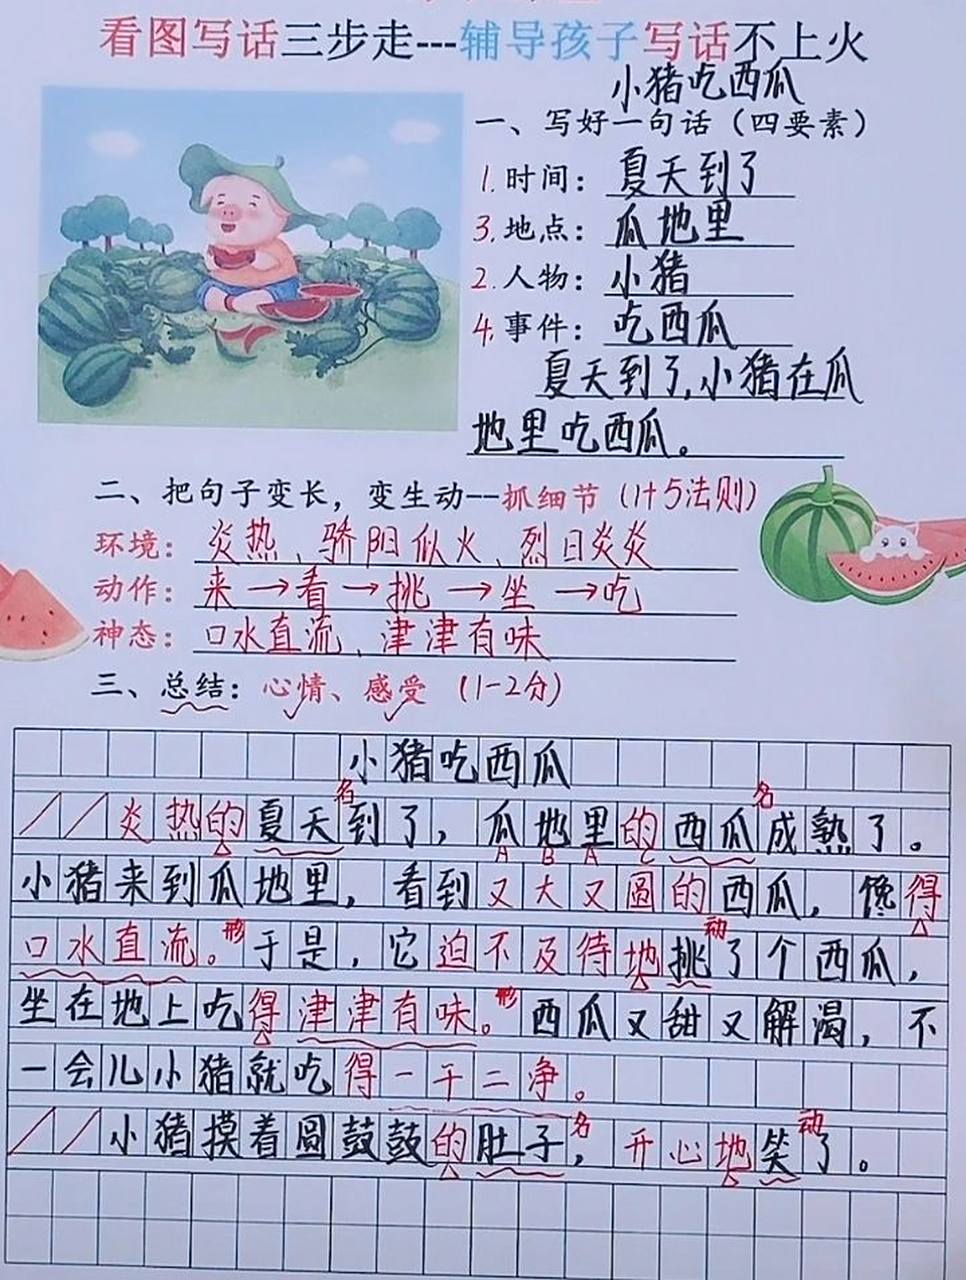 看图写话三步走---辅导孩子写话不上火
小猪吃西瓜
一、写好一句话（四要素）
1.时间：夏天到了
3.地点：瓜地里
2.人物：小猪
4.事件：吃西瓜
夏天到了,小猪在瓜
地里吃西瓜。
二、把句子变长，变生动--抓细节（1+5法则）
环境：炎热、骄阳似火、烈日炎炎
动作：来→看→挑→坐→吃
神态：口水直流、津津有味
三、总结：心情、感受（1-2分）
小猪吃西瓜
炎热的夏天名到了，瓜地里的西瓜名成熟了。
A B A C
小猪来到瓜地里，看到又大又圆的西瓜，馋得
口水直流。形于是，它迫不及待地挑动了个西瓜，
坐在地上吃得津津有味。形西瓜又甜又解渴，不
一会儿小猪就吃得一干二净。
小猪摸着圆鼓鼓的肚子名，开心地笑动了。